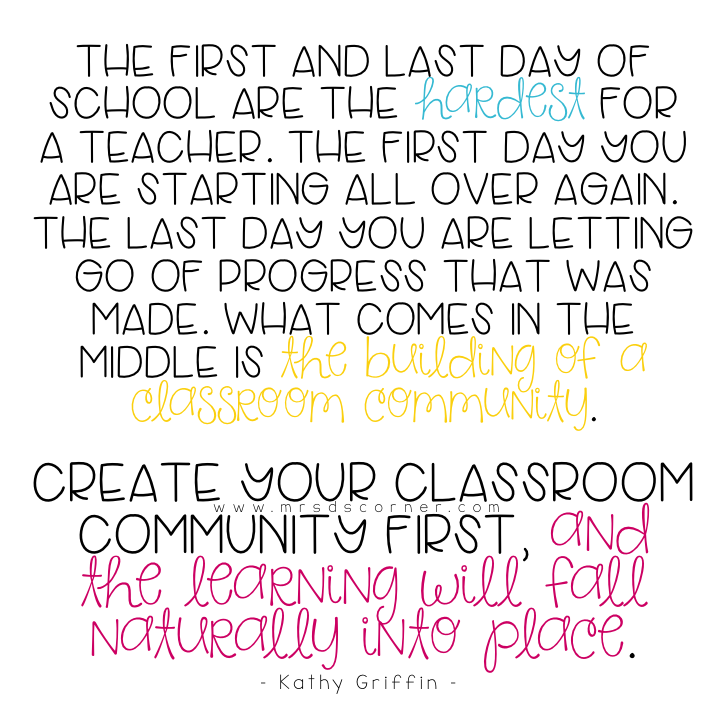 THE FIRST AND LAST DAY OF
SCHOOL ARE THE hardest FOR
A TEACHER. THE FIRST DAY YOU
ARE STARTING ALL OVER AGAIN.
THE LAST DAY YOU ARE LETTING
GO OF PROGRESS THAT WAS
MADE. WHAT COMES IN THE
MIDDLE IS the building of a
classroom community.
CREATE YOUR CLASSROOM
www.mrsdscorner.com
COMMUNITY FIRST, and
the learning will fall
naturally into place.
- Kathy Griffin -